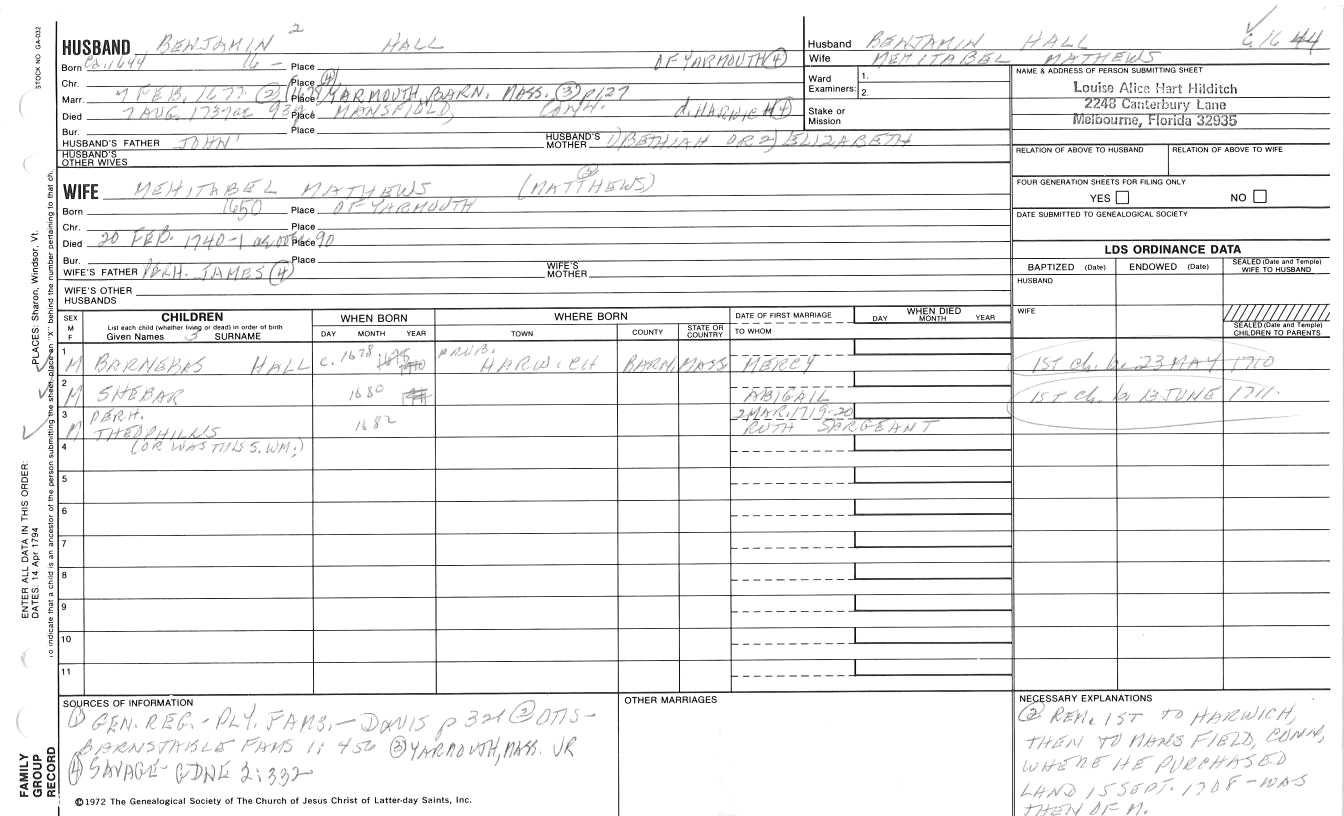 STOCK NO GA-032
HUSBAND BENJAMIN 2 HALL
Born Ca. 1644 16 - Place OF YARMOUTH (4)
Chr. Place (4)
Marr. 7 FEB. 1677 (2) 1678 Place YARMOUTH, BARN. MASS. (3) p 127
Died 7 AUG. 1737 ae 93y Place MANSFIELD, CONN. d. HARWICH (4)
Bur. Place
HUSBAND'S FATHER JOHN 1 HUSBAND'S MOTHER 1) BETHIAH OR 2) ELIZABETH
HUSBAND'S OTHER WIVES
WIFE MEHITABEL MATHEWS (MATTHEWS) (3)
Born 1650 Place OF YARMOUTH
Chr. Place
Died 20 FEB. 1740-1 Place 90
Bur. Place
WIFE'S FATHER PERH. JAMES (4) WIFE'S MOTHER
WIFE'S OTHER HUSBANDS
Husband BENJAMIN HALL G16 44
Wife MEHITABEL MATHEWS
Ward Examiners: 1.
2.
Stake or Mission
NAME & ADDRESS OF PERSON SUBMITTING SHEET
Louise Alice Hart Hilditch
2248 Canterbury Lane
Melbourne, Florida 32935
RELATION OF ABOVE TO HUSBAND RELATION OF ABOVE TO WIFE
FOUR GENERATION SHEETS FOR FILING ONLY
YES NO
DATE SUBMITTED TO GENEALOGICAL SOCIETY
LDS ORDINANCE DATA
BAPTIZED (Date) ENDOWED (Date) SEALED (Date and Temple) WIFE TO HUSBAND
HUSBAND
WIFE
SEALED (Date and Temple) CHILDREN TO PARENTS
SEX M F CHILDREN WHEN BORN WHERE BORN DATE OF FIRST MARRIAGE WHEN DIED
List each child (whether living or dead) in order of birth
Given Names 3 SURNAME DAY MONTH YEAR TOWN COUNTY STATE OR COUNTRY TO WHOM DAY MONTH YEAR
1 M BARNEBAS HALL c. 1678 PROB. HARWICH BARN. MASS MERCY 1ST ch. b. 23 MAY 1710
2 M SHEBAR 1680 ABIGAIL 1ST ch. b. 13 JUNE 1711.
3 M PERH. THEOPHILUS 1682 2 MAR. 1719-20 RUTH SARGEANT
4 (OR WAS THIS S. WM.)
5
6
7
8
9
10
11
SOURCES OF INFORMATION
(1) GEN. REG. - PLY. FAMS. - DAVIS p 321 (2) OTIS -
BARNSTABLE FAMS 1: 456 (3) YARMOUTH, MASS. VR
(4) SAVAGE - GDNE 2:332
OTHER MARRIAGES
NECESSARY EXPLANATIONS
(2) REM. 1ST TO HARWICH,
THEN TO MANSFIELD, CONN,
WHERE HE PURCHASED
LAND 15 SEPT. 1708 - WAS
THEN OF M.
©1972 The Genealogical Society of The Church of Jesus Christ of Latter-day Saints, Inc.
FAMILY GROUP RECORD
ENTER ALL DATA IN THIS ORDER:
DATES: 14 Apr 1794
PLACES: Sharon, Windsor, Vt.
To indicate that a child is an ancestor of the person submitting the sheet, place an "X" behind the number pertaining to that ch.